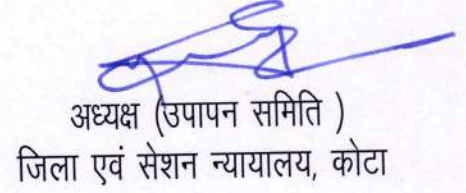 अध्यक्ष (उपापन समिति )
जिला एवं सेशन न्यायालय, कोटा